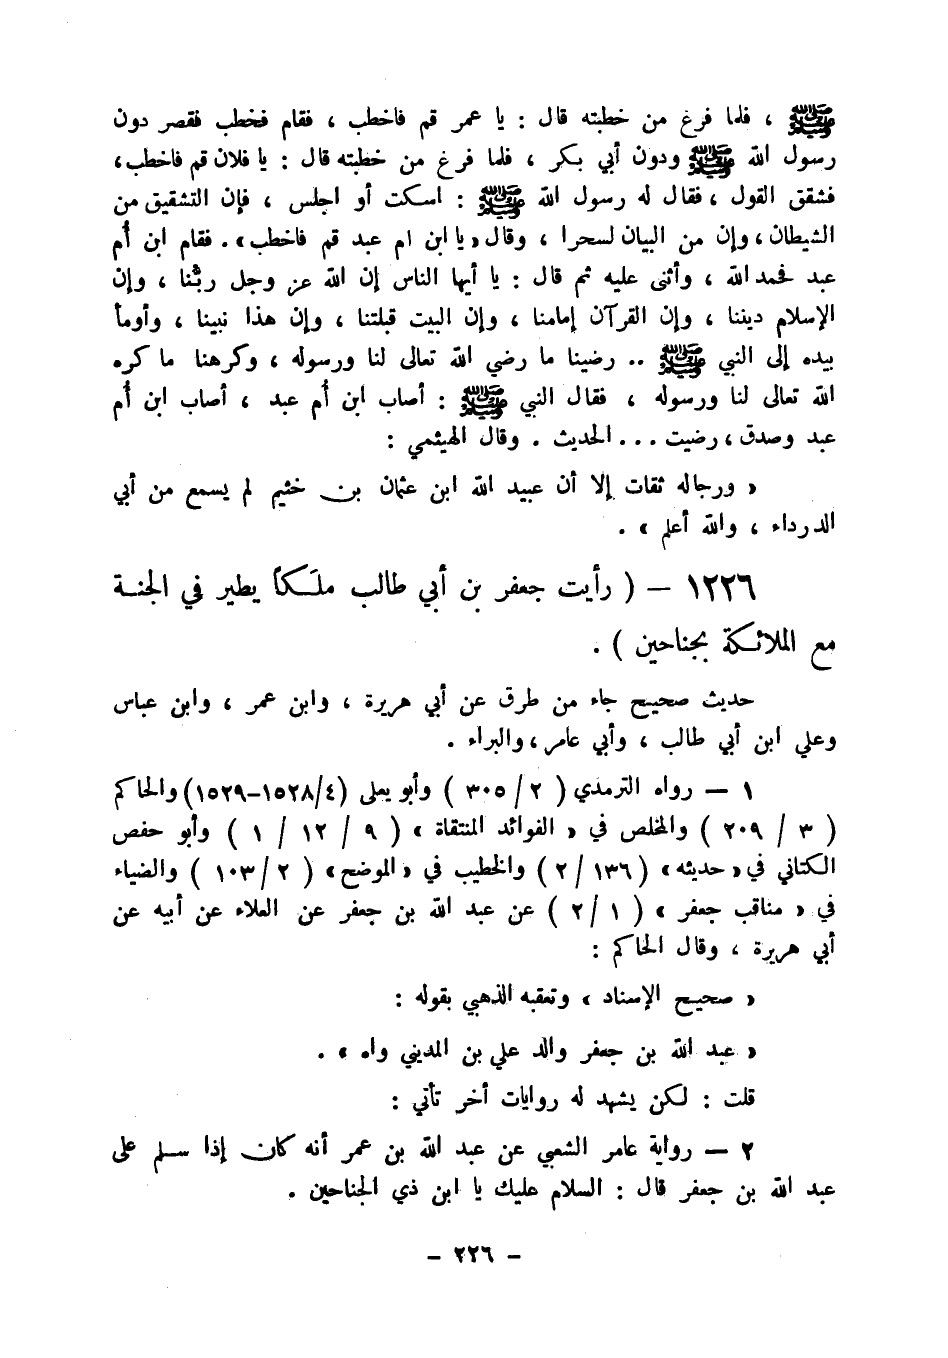 ﷺ ، فلما فرغ من خطبته قال : يا عمر قم فاخطب ، فقام فخطب فقصر دون
رسول الله ﷺ ودون أبي بكر ، فلما فرغ من خطبته قال : يا فلان قم فاخطب ،
فشقق القول ، فقال له رسول الله ﷺ : اسكت أو اجلس ، فإن التشقيق من
الشيطان ، وإن من البيان لسحرا ، وقال « يا ابن ام عبد قم فاخطب » . فقام ابن أم
عبد فحمد الله ، وأثنى عليه ثم قال : يا أيها الناس إن الله عز وجل ربُّنا ، وإن
الإسلام ديننا ، وإن القرآن إمامنا ، وإن البيت قبلتنا ، وإن هذا نبينا ، وأومأ
بيده إلى النبي ﷺ .. رضينا ما رضي الله تعالى لنا ورسوله ، وكرهنا ما كره
الله تعالى لنا ورسوله ، فقال النبي ﷺ : أصاب ابن أُم عبد ، أصاب ابن أُم
عبد وصدق ، رضيت ... الحديث . وقال الهيثمي :
« ورجاله ثقات إلا أن عبيد الله ابن عثمان بن خثيم لم يسمع من أبي
الدرداء ، والله أعلم » .
١٢٢٦ – ( رأيت جعفر بن أبي طالب ملَكاً يطير في الجنة
مع الملائكة بجناحين ) .
حديث صحيح جاء من طرق عن أبي هريرة ، وابن عمر ، وابن عباس
وعلي ابن أبي طالب ، وأبي عامر ، والبراء .
١ – رواه الترمذي ( ٢ / ٣٠٥ ) وأبو يعلى (٤/١٥٢٨–١٥٢٩) والحاكم
( ٣ / ٢٠٩ ) والمخلص في « الفوائد المنتقاة » ( ٩ / ١٢ / ١ ) وأبو حفص
الكتاني في « حديثه » ( ١٣٦ / ٢ ) والخطيب في « الموضح » ( ٢ / ١٠٣ ) والضياء
في « مناقب جعفر » ( ١ / ٢ ) عن عبد الله بن جعفر عن العلاء عن أبيه عن
أبي هريرة ، وقال الحاكم :
« صحيح الإسناد » وتعقبه الذهبي بقوله :
« عبد الله بن جعفر والد علي بن المديني واه » .
قلت : لكن يشهد له روايات أخر تأتي :
٢ – رواية عامر الشعبي عن عبد الله بن عمر أنه كان إذا سلم على
عبد الله بن جعفر قال : السلام عليك يا ابن ذي الجناحين .
– ٢٢٦ –